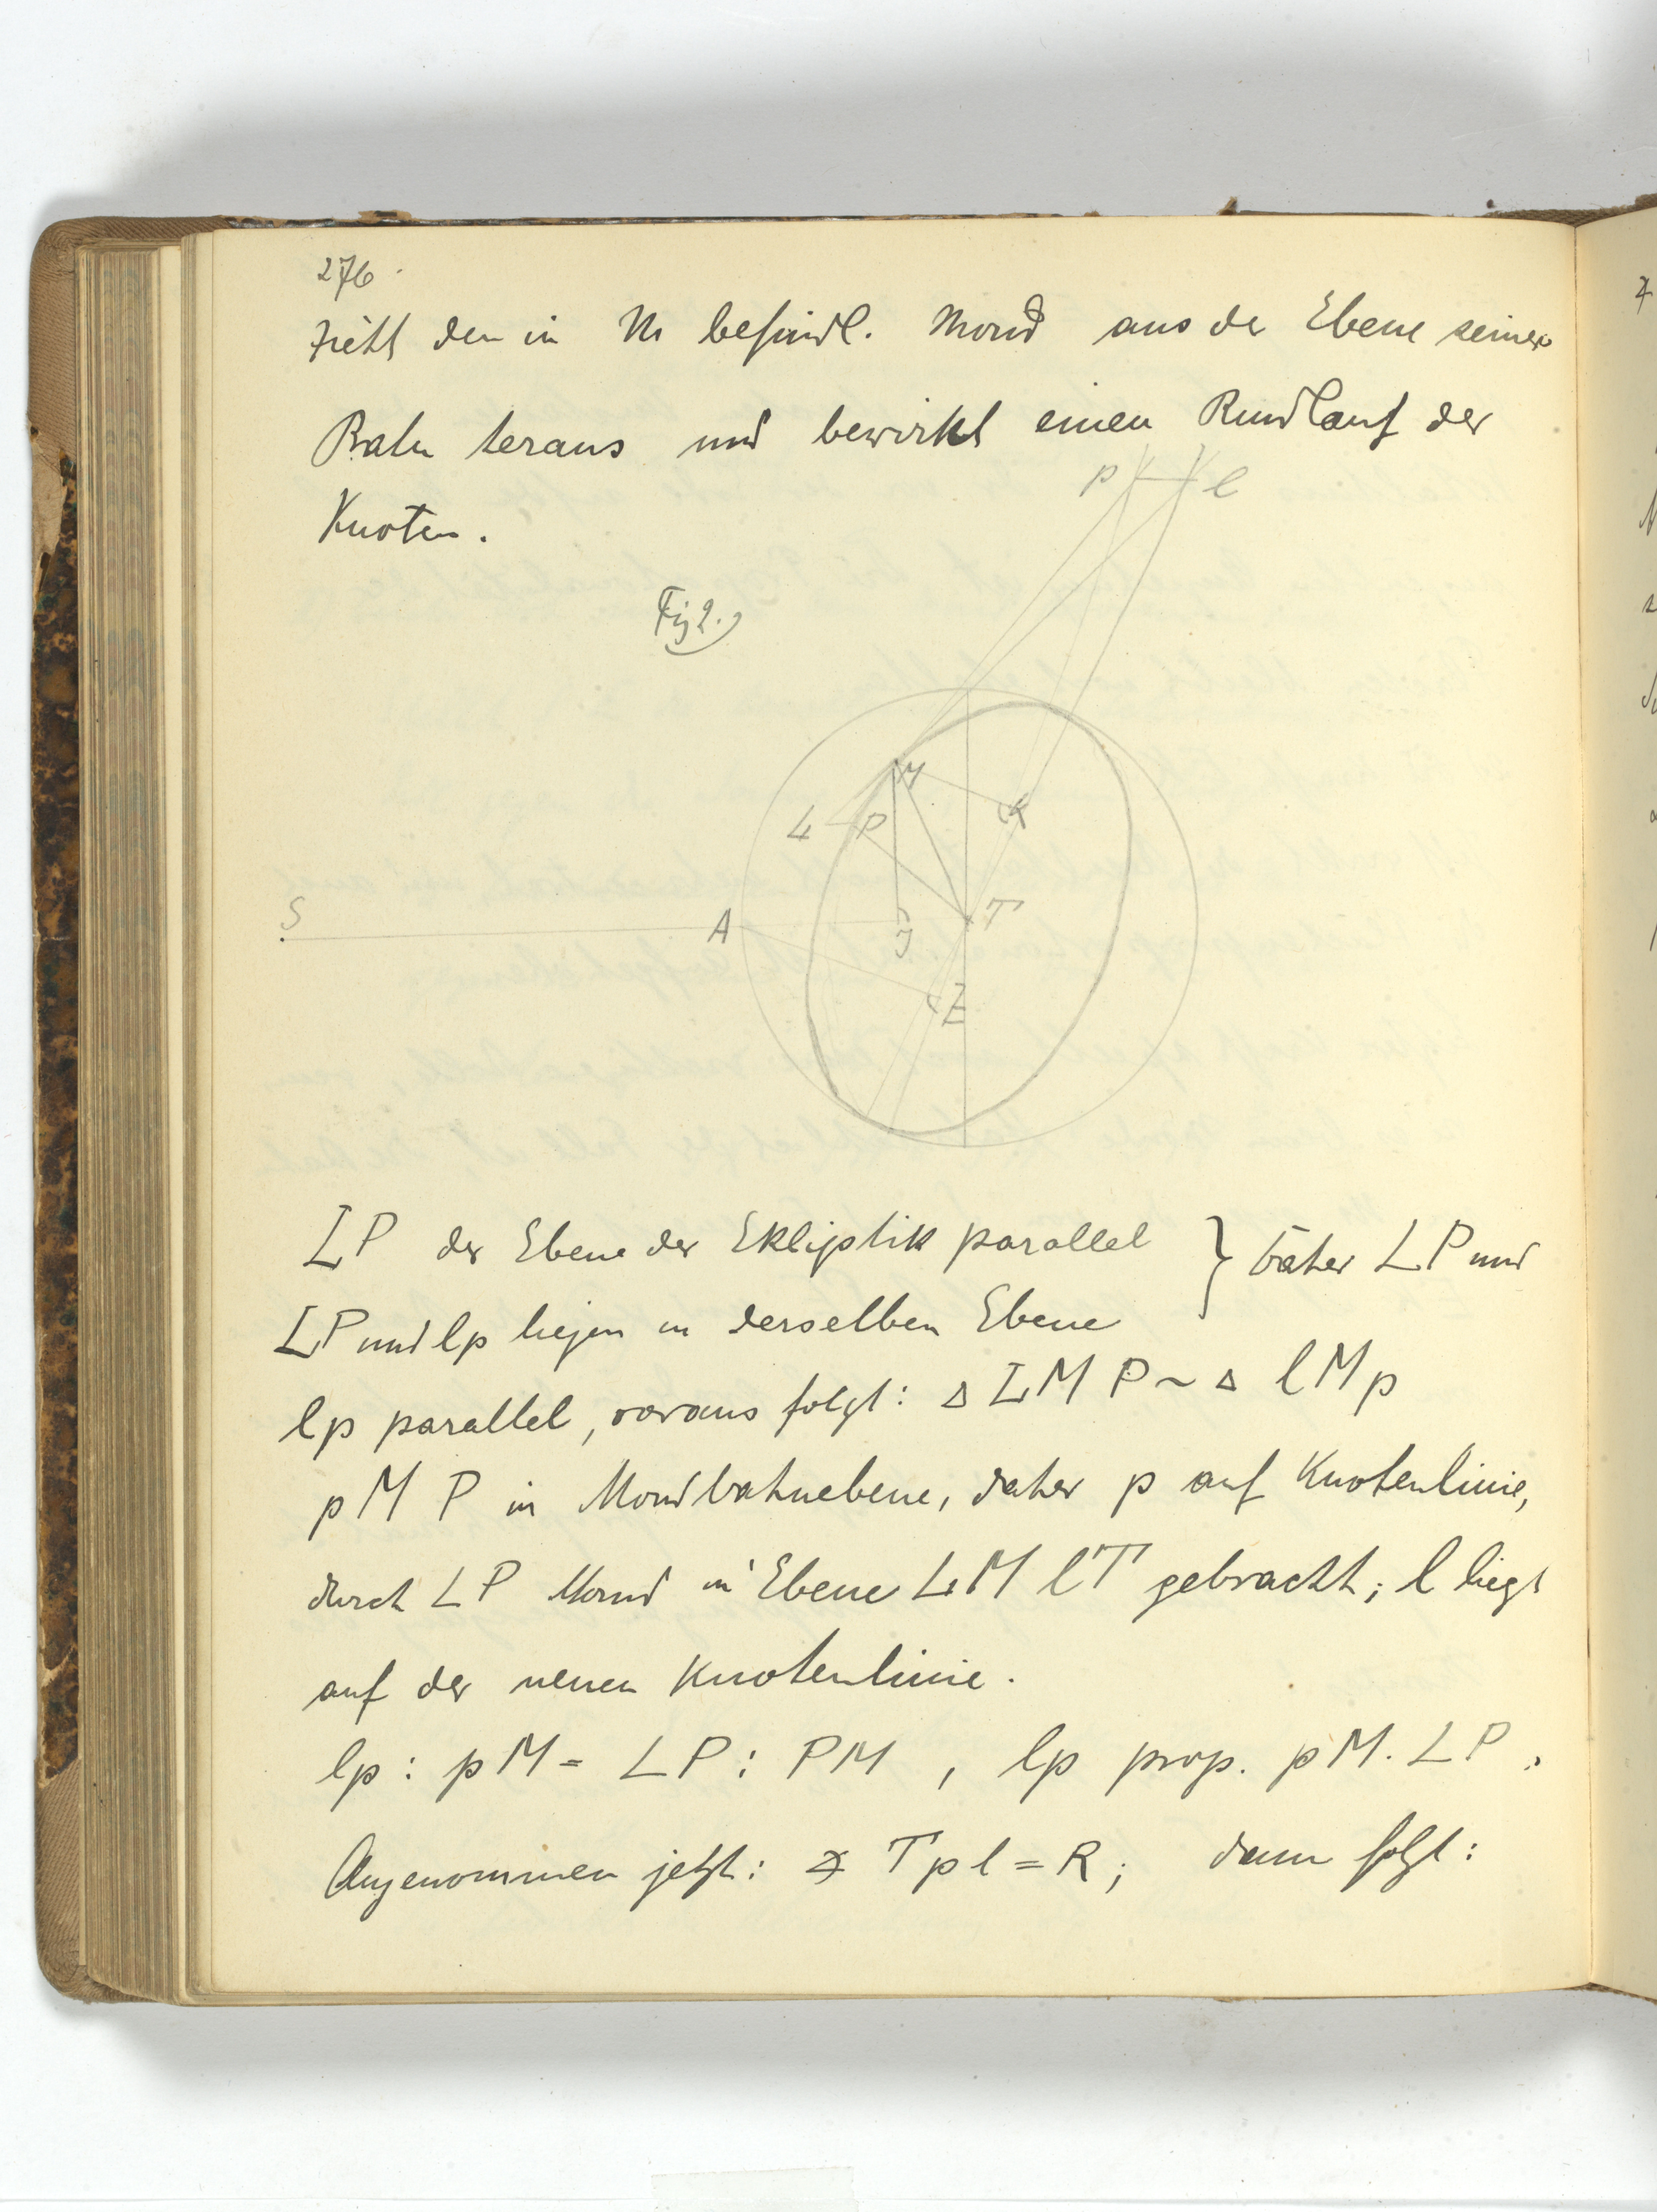 276.
zieht den in M befindl. Mond aus der Ebene seiner
Bahn heraus und bewirkt einen Rundlauf der
Knoten.
p l
Fig 2.)
M
L P K
S A J T
E
LP der Ebene der Ekliptik parallel } daher LP und
LP und lp liegen in derselben Ebene
lp parallel, woraus folgt: Δ LMP ~ Δ lMp
pMP in Mondbahnebene, daher p auf Knotenlinie,
durch LP Mond in Ebene LMlT gebracht; l liegt
auf der neuen Knotenlinie.
lp : pM = LP : PM , lp prop. pM. LP.
Angenommen jetzt: ∢ Tpl = R; dann folgt: